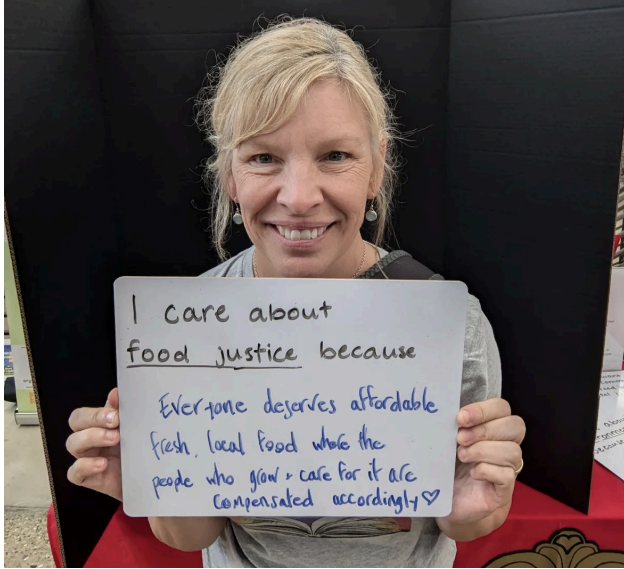 I care about
food justice because
Everyone deserves affordable
fresh, local food where the
people who grow + care for it are
compensated accordingly ♡